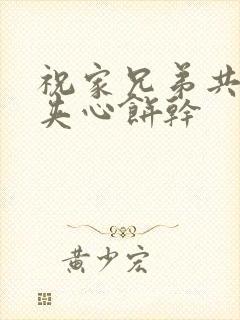 祝家兄弟共
夹心餅幹
黄少宏